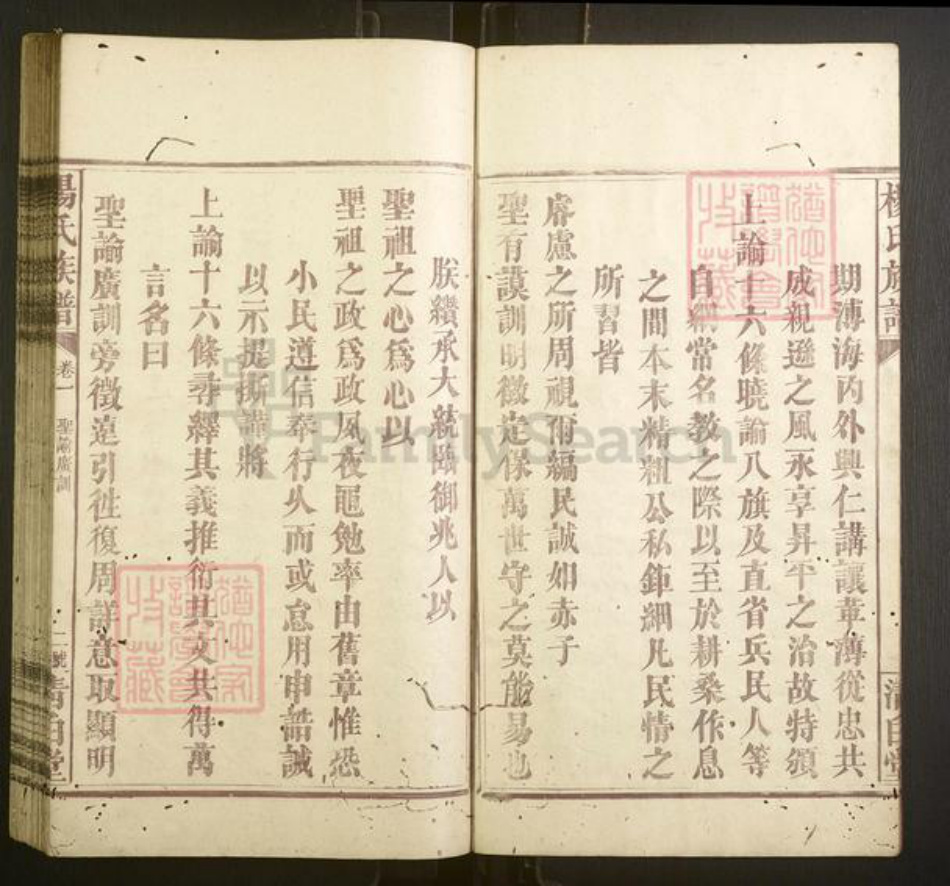 楊氏族譜
清白堂
期溥海內外興仁講讓革薄從忠共
成親遜之風永享昇平之治故特頒
上諭十六條曉諭八旗及直省兵民人等
自綱常名教之際以至於耕桑作息
之間本末精粗公私鉅細凡民情之
所習皆
睿慮之所周視爾編民誠如赤子
聖有謨訓明徵定保萬世守之莫能易也
朕纘承大統臨御兆人以
聖祖之心爲心以
聖祖之政爲政夙夜黽勉率由舊章惟恐
小民遵信奉行久而或怠用申誥誡
以示提撕謹將
上諭十六條尋繹其義推衍其文共得萬
言名曰
聖諭廣訓旁徵遠引徃復周詳意取顯明
楊氏族譜
卷一
聖諭廣訓
二號
清白堂
FamilySearch